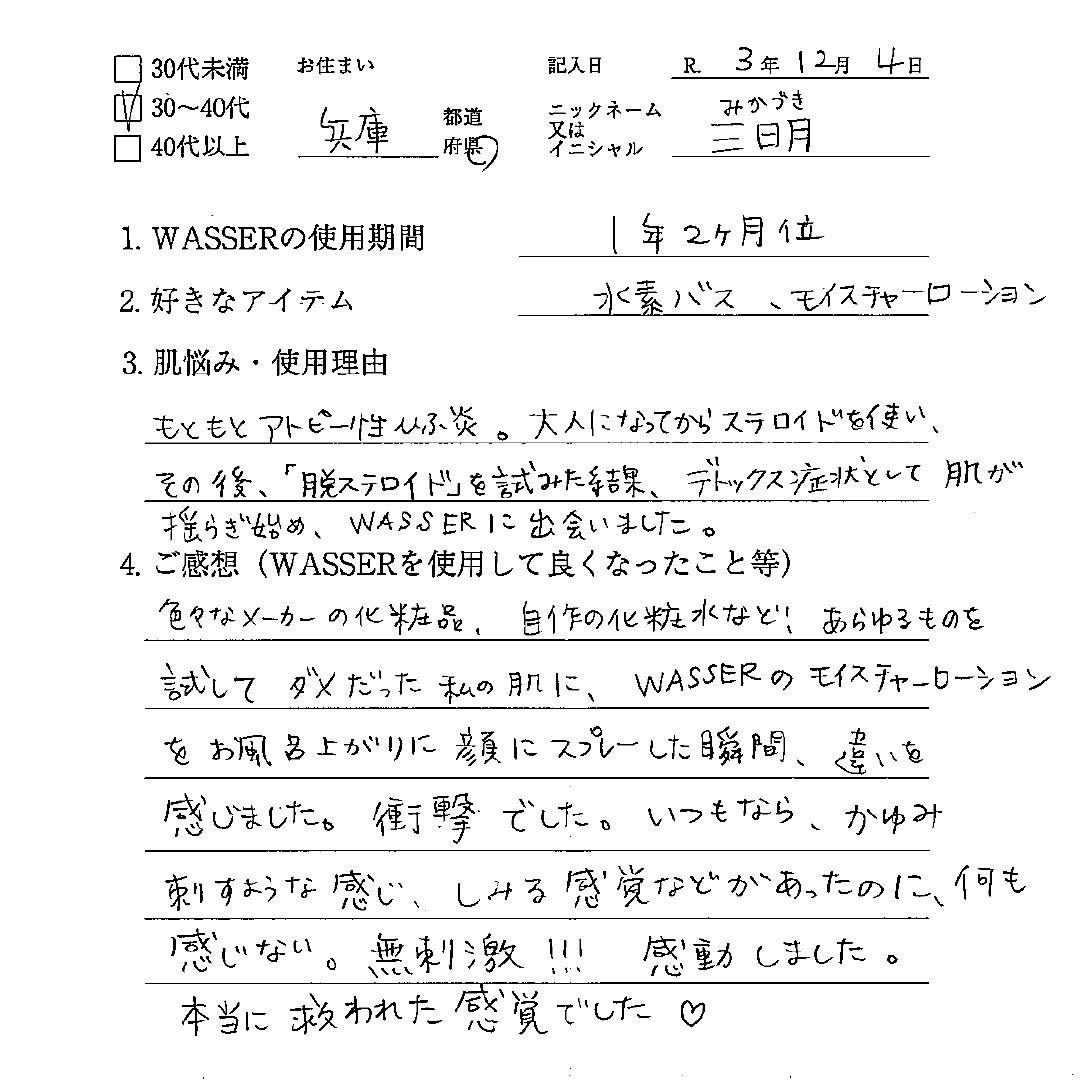 □ 30代未満 お住まい 記入日 R. 3年12月4日
☑ 30〜40代 兵庫 都道 ニックネーム みかづき
□ 40代以上 府県 又は 三日月
イニシャル
1. WASSERの使用期間 1年2ヶ月位
2. 好きなアイテム 水素バス、モイスチャーローション
3. 肌悩み・使用理由
もともとアトピー性ひふ炎。大人になってからステロイドを使い、
その後、「脱ステロイド」を試みた結果、デトックス症状として肌が
揺らぎ始め、WASSERに出会いました。
4. ご感想（WASSERを使用して良くなったこと等）
色々なメーカーの化粧品、自作の化粧水など、あらゆるものを
試してダメだった私の肌に、WASSERのモイスチャーローション
をお風呂上がりに顔にスプレーした瞬間、違いを
感じました。衝撃でした。いつもなら、かゆみ
刺すような感じ、しみる感覚などがあったのに、何も
感じない。無刺激!!! 感動しました。
本当に救われた感覚でした♡